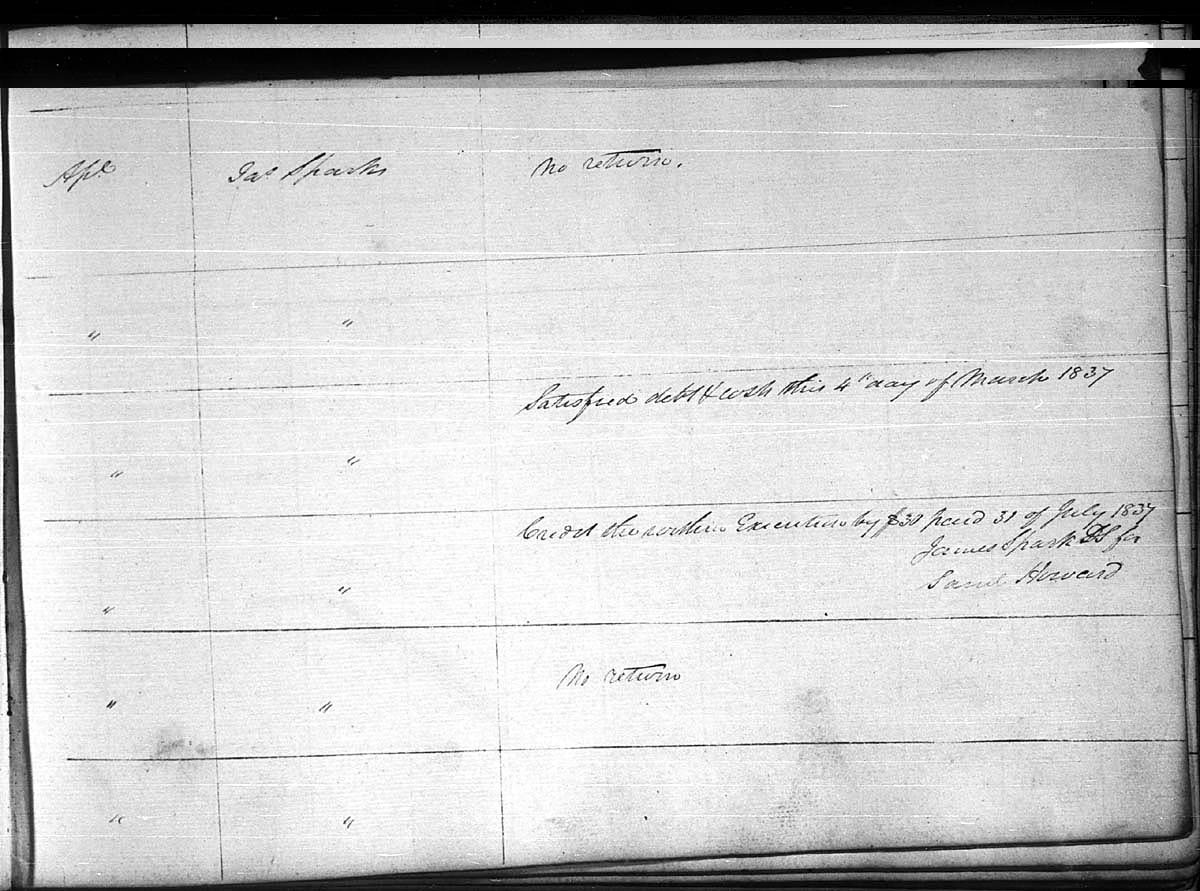 Apl Jas Sparks No return.
" "
Satisfied debt & cost this 4th day of March 1837
" "
Credit the within Execution by $30 paid 31 of July 1837
James Spark DS for
Saml Howard
" "
No return
" "
" "